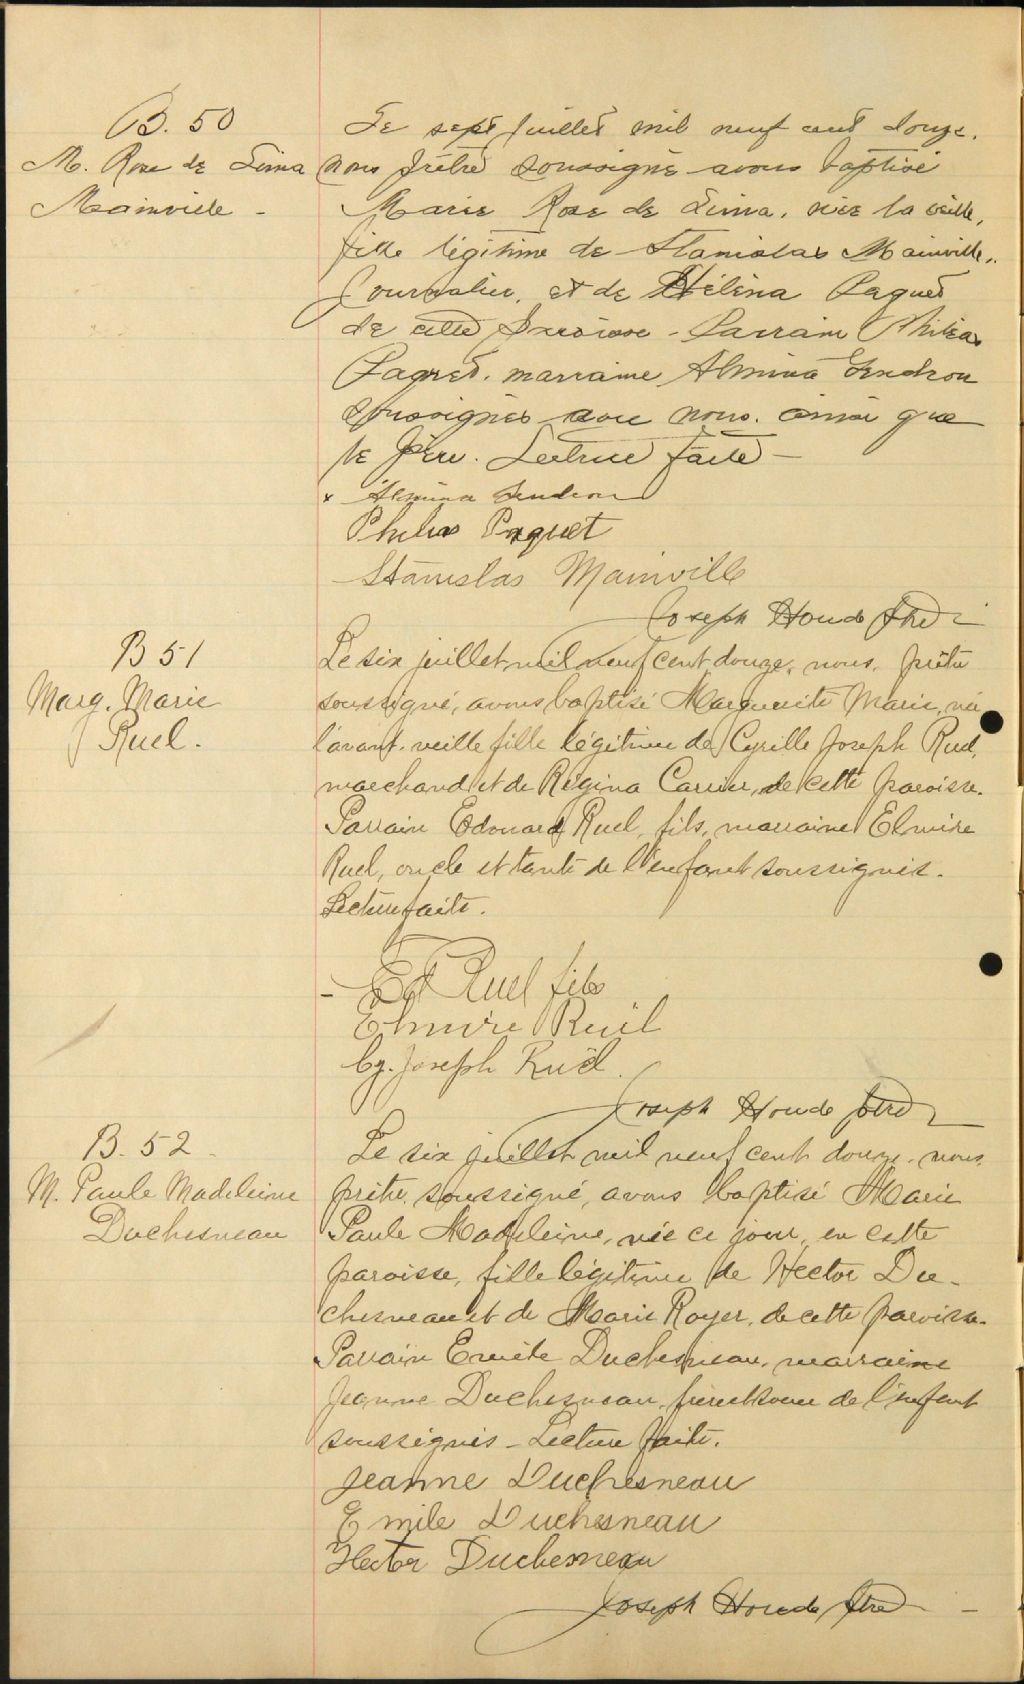 B. 50
M. Rose de Lima
Mainville -
Le sept juillet mil neuf cent douze,
nous prêtre soussigné avons baptisé
Marie Rose de Lima, née la veille,
fille légitime de Stanislas Mainville,
Journalier, et de Hélèna Paquet
de cette paroisse - Parrain Philéas
Paquet, marraine Almina Gendron
soussignés avec nous, ainsi que
le père. Lecture faite -
x Almina Gendron
Phileas Paquet
Stanislas Mainville
Joseph Houde Ptre
B 51
Marg. Marie
Ruel.
Le six juillet mil neuf cent douze, nous, prêtre
soussigné, avons baptisé Marguerite Marie, née
l'avant-veille fille légitime de Cyrille Joseph Ruel,
marchand et de Régina Carrier, de cette paroisse.
Parrain Edouard Ruel, fils, marraine Elmire
Ruel, oncle et tante de l'enfant soussignés.
Lecture faite.
- Ed Ruel fils
Elmire Ruel
Cy. Joseph Ruel.
Joseph Houde ptre
B. 52
M. Paule Madeleine
Duchesneau
Le six juillet mil neuf cent douze, nous,
prêtre, soussigné, avons baptisé Marie
Paule Madeleine, née ce jour, en cette
paroisse, fille légitime de Hector Du-
chesneau et de Marie Royer, de cette paroisse.
Parrain Emile Duchesneau, marraine
Jeanne Duchesneau, frère et soeur de l'enfant
soussignés - Lecture faite.
Jeanne Duchesneau
Emile Duchesneau
Hector Duchesneau
Joseph Houde Ptre -